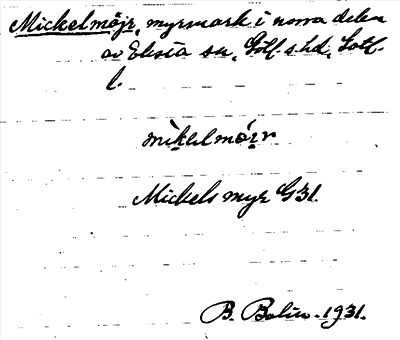 Mickelmöjr, myrmark i norra delen
av Eksta sn, Gotl. s. hd, Gotl.
l.
mikelmöir
Mickels myr G31.
B. Bolin. 1931.